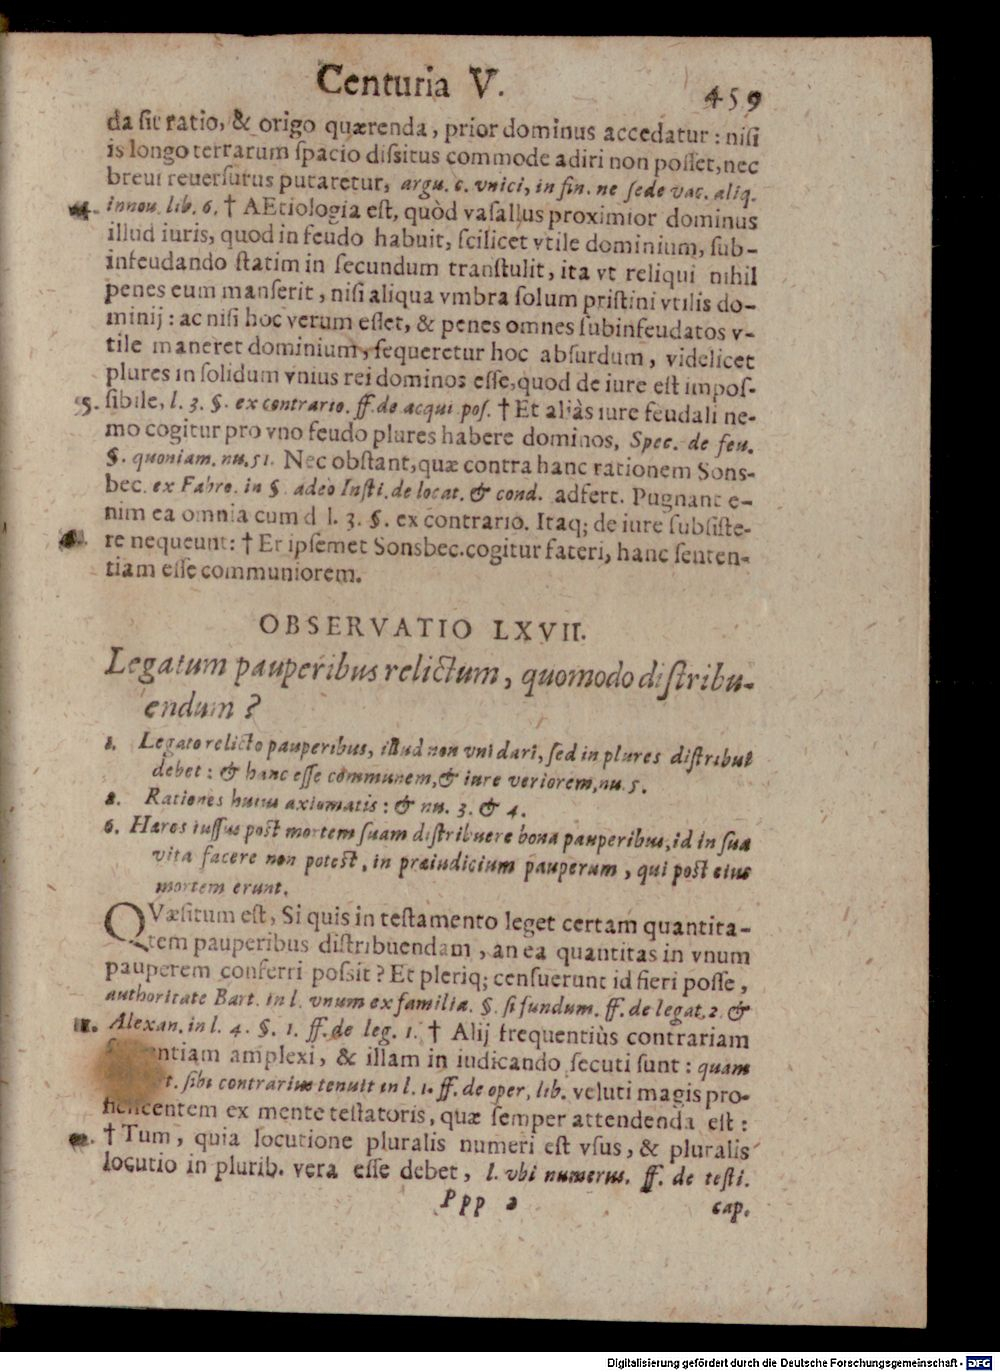 Centuria V.
459
da ſit ratio, & origo quærenda, prior dominus accedatur: niſi
is longo terrarum ſpacio diſsitus commode adiri non poſſet, nec
breui reuerſurus putaretur, argu. c. vnici, in fin. ne ſede vac. aliq.
4. innou. lib. 6. † AEtiologia eſt, quòd vaſallus proximior dominus
illud iuris, quod in feudo habuit, ſcilicet vtile dominium, ſub-
infeudando ſtatim in ſecundum tranſtulit, ita vt reliqui nihil
penes eum manſerit, niſi aliqua vmbra ſolum priſtini vtilis do-
minij: ac niſi hoc verum eſſet, & penes omnes ſubinfeudatos v-
tile maneret dominium, ſequeretur hoc abſurdum, videlicet
plures in ſolidum vnius rei dominos eſſe, quod de iure eſt impoſ-
5. ſibile, l. 3. §. ex contrario. ff. de acqui poſ. † Et aliàs iure feudali ne-
mo cogitur pro vno feudo plures habere dominos, Spec. de feu.
§. quoniam. nu. 51. Nec obſtant, quæ contra hanc rationem Sons-
bec. ex Fabro. in §. adeo Inſti. de locat. & cond. adfert. Pugnant e-
nim ea omnia cum d l. 3. §. ex contrario. Itaq; de iure ſubſiſte-
re nequeunt: † Et ipſemet Sonsbec. cogitur fateri, hanc ſenten-
tiam eſſe communiorem.
OBSERVATIO LXVII.
Legatum pauperibus relictum, quomodo diſtribu-
endum?
1. Legato relicto pauperibus, illud non vni dari, ſed in plures diſtribui
debet: & hanc eſſe communem, & iure veriorem, nu. 5.
2. Rationes huius axiomatis: & nu. 3. & 4.
6. Hæres iuſſus poſt mortem ſuam diſtribuere bona pauperibus, id in ſua
vita facere non poteſt, in præiudicium pauperum, qui poſt eius
mortem erunt.
QVæſitum eſt, Si quis in teſtamento leget certam quantita-
tem pauperibus diſtribuendam, an ea quantitas in vnum
pauperem conferri poſsit? Et pleriq; cenſuerunt id fieri poſſe,
authoritate Bart. in l. vnum ex familia. §. ſi fundum. ff. de legat. 2. &
Alexan. in l. 4. §. 1. ff. de leg. 1. † Alij frequentiùs contrariam
ntiam amplexi, & illam in iudicando ſecuti ſunt: quam
t. ſibi contrarius tenuit in l. 1. ff. de oper, lib. veluti magis pro-
ficiſcentem ex mente teſtatoris, quæ ſemper attendenda eſt:
† Tum, quia locutione pluralis numeri eſt vſus, & pluralis
locutio in plurib. vera eſſe debet, l. vbi numerus. ff. de teſti.
Ppp 2
cap.
Digitalisierung gefördert durch die Deutsche Forschungsgemeinschaft - DFG